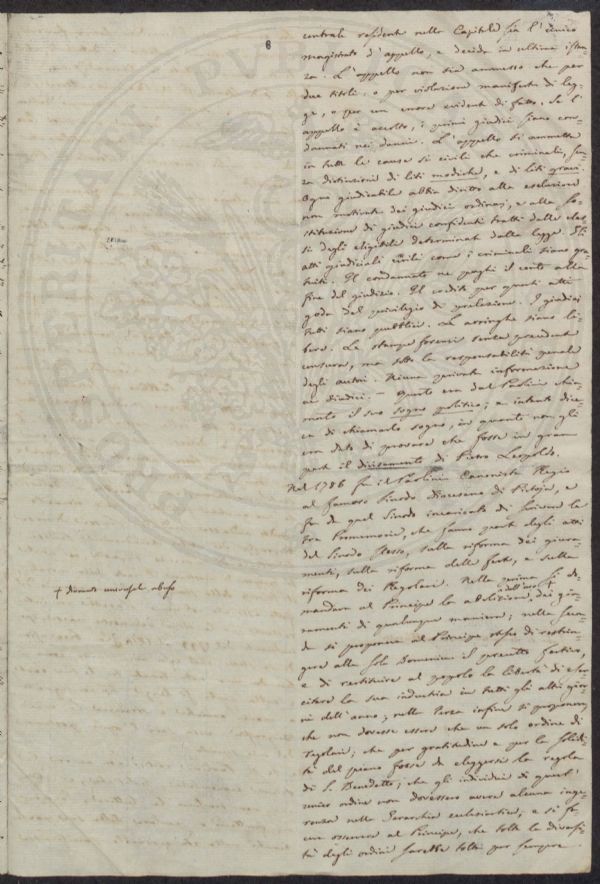 8
centrale residente nella Capitale sia l'unico
magistrato d'appello, e decida in ultima istan-
za. L'appello non sia ammesso che per
due titoli, o per violazione manifesta di leg-
ge, o per un errore evidente di fatto. Se l'
appello è accolto, i primi giudici siano con-
dannati nei danni. L'appello si ammetta
in tutte le cause sì civili che criminali, sen-
za distinzione di liti modiche, e di liti gravi.
Ogni giudicabile abbia diritto alla esclusione
non motivata dei giudici ordinarj, e alla so-
stituzione di giudici confidenti tratti dalle clas-
si degli eligibili determinate dalla legge. Gli
atti giudiciali civili come i criminali siano gra-
tuiti. Il condannato ne paghi il conto alla
fine del giudizio. Il credito per questi atti
goda del privilegio di prelazione. I giudizj
tutti siano pubblici. Le arringhe siano li-
bere. Le stampe forensi senza precedente
censura, ma sotto la responsabilità penale
degli autori. Niuna privata informazione
ai Giudici. — Questo era dal Paolini chia-
mato il suo sogno politico; e intanto dice-
va di chiamarlo sogno, in quanto non gli
era dato di provare che fosse in gran
parte il divisamento di Pietro Leopoldo.
Nel 1786 fu il Paolini Canonista Regio
al famoso Sinodo diocesano di Pistoja, e
fu da quel Sinodo incaricato di scrivere le
tre Promemorie, che fanno parte degli atti
del Sinodo stesso, sulla riforma dei giura-
menti, sulla riforma delle feste, e sulla
riforma dei Regolari. Nella prima si do-
dell'uso +
mandava al Principe la abolizione dei giu-
+ divenuto universale abuso
ramenti di qualunque maniera; nella secon-
da si proponeva al Principe stesso di restrin-
gere alle sole Domeniche il precetto festivo,
e di restituire al popolo la libertà di eser-
citare la sua industria in tutti gli altri gior-
ni dell'anno; nella terza infine si proponeva
che non dovesse essere che un solo ordine di
regolari; che per gratitudine e per la solidi-
tà del piano fosse da eleggersi la regola
di S. Benedetto; che gli individui di quest'
unico ordine non dovessero avere alcuna inge-
renza nella Gerarchia ecclesiastica; e si fa-
ceva osservare al Principe, che tolta la diversi-
tà degli ordini sarebbe tolta per sempre